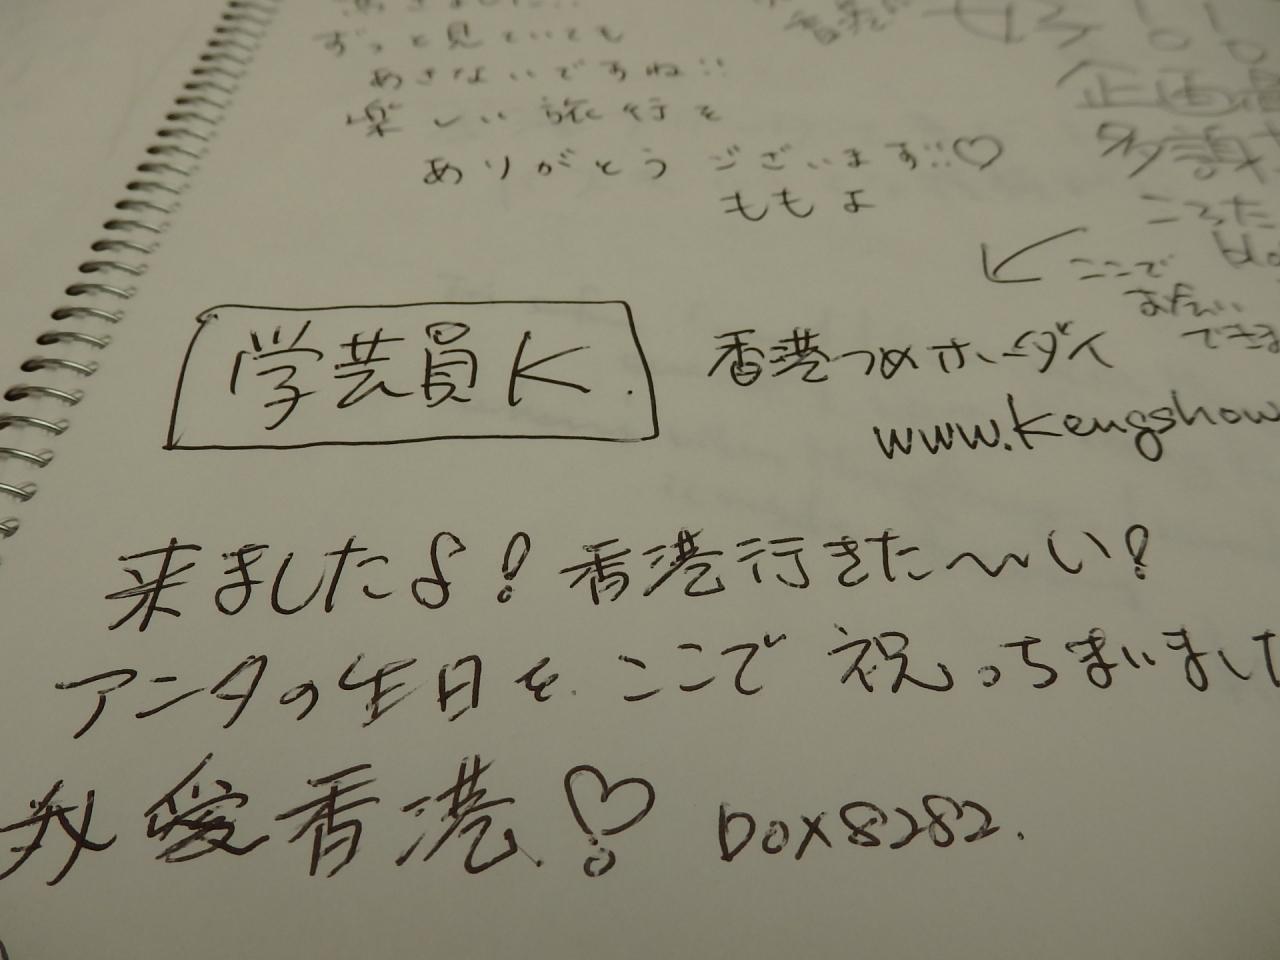 ずっと見ていても
あきないですね!!
楽しい旅行を
ありがとうございます!!♡
ももよ
香港
企画
多謝
ころた
ここで
できま
学芸員K.
香港つめホーダイ
www.kengshow
来ましたよ!香港行きた〜い!
アンタの生日をここで祝っちまいまし
我愛香港♡! box8282.